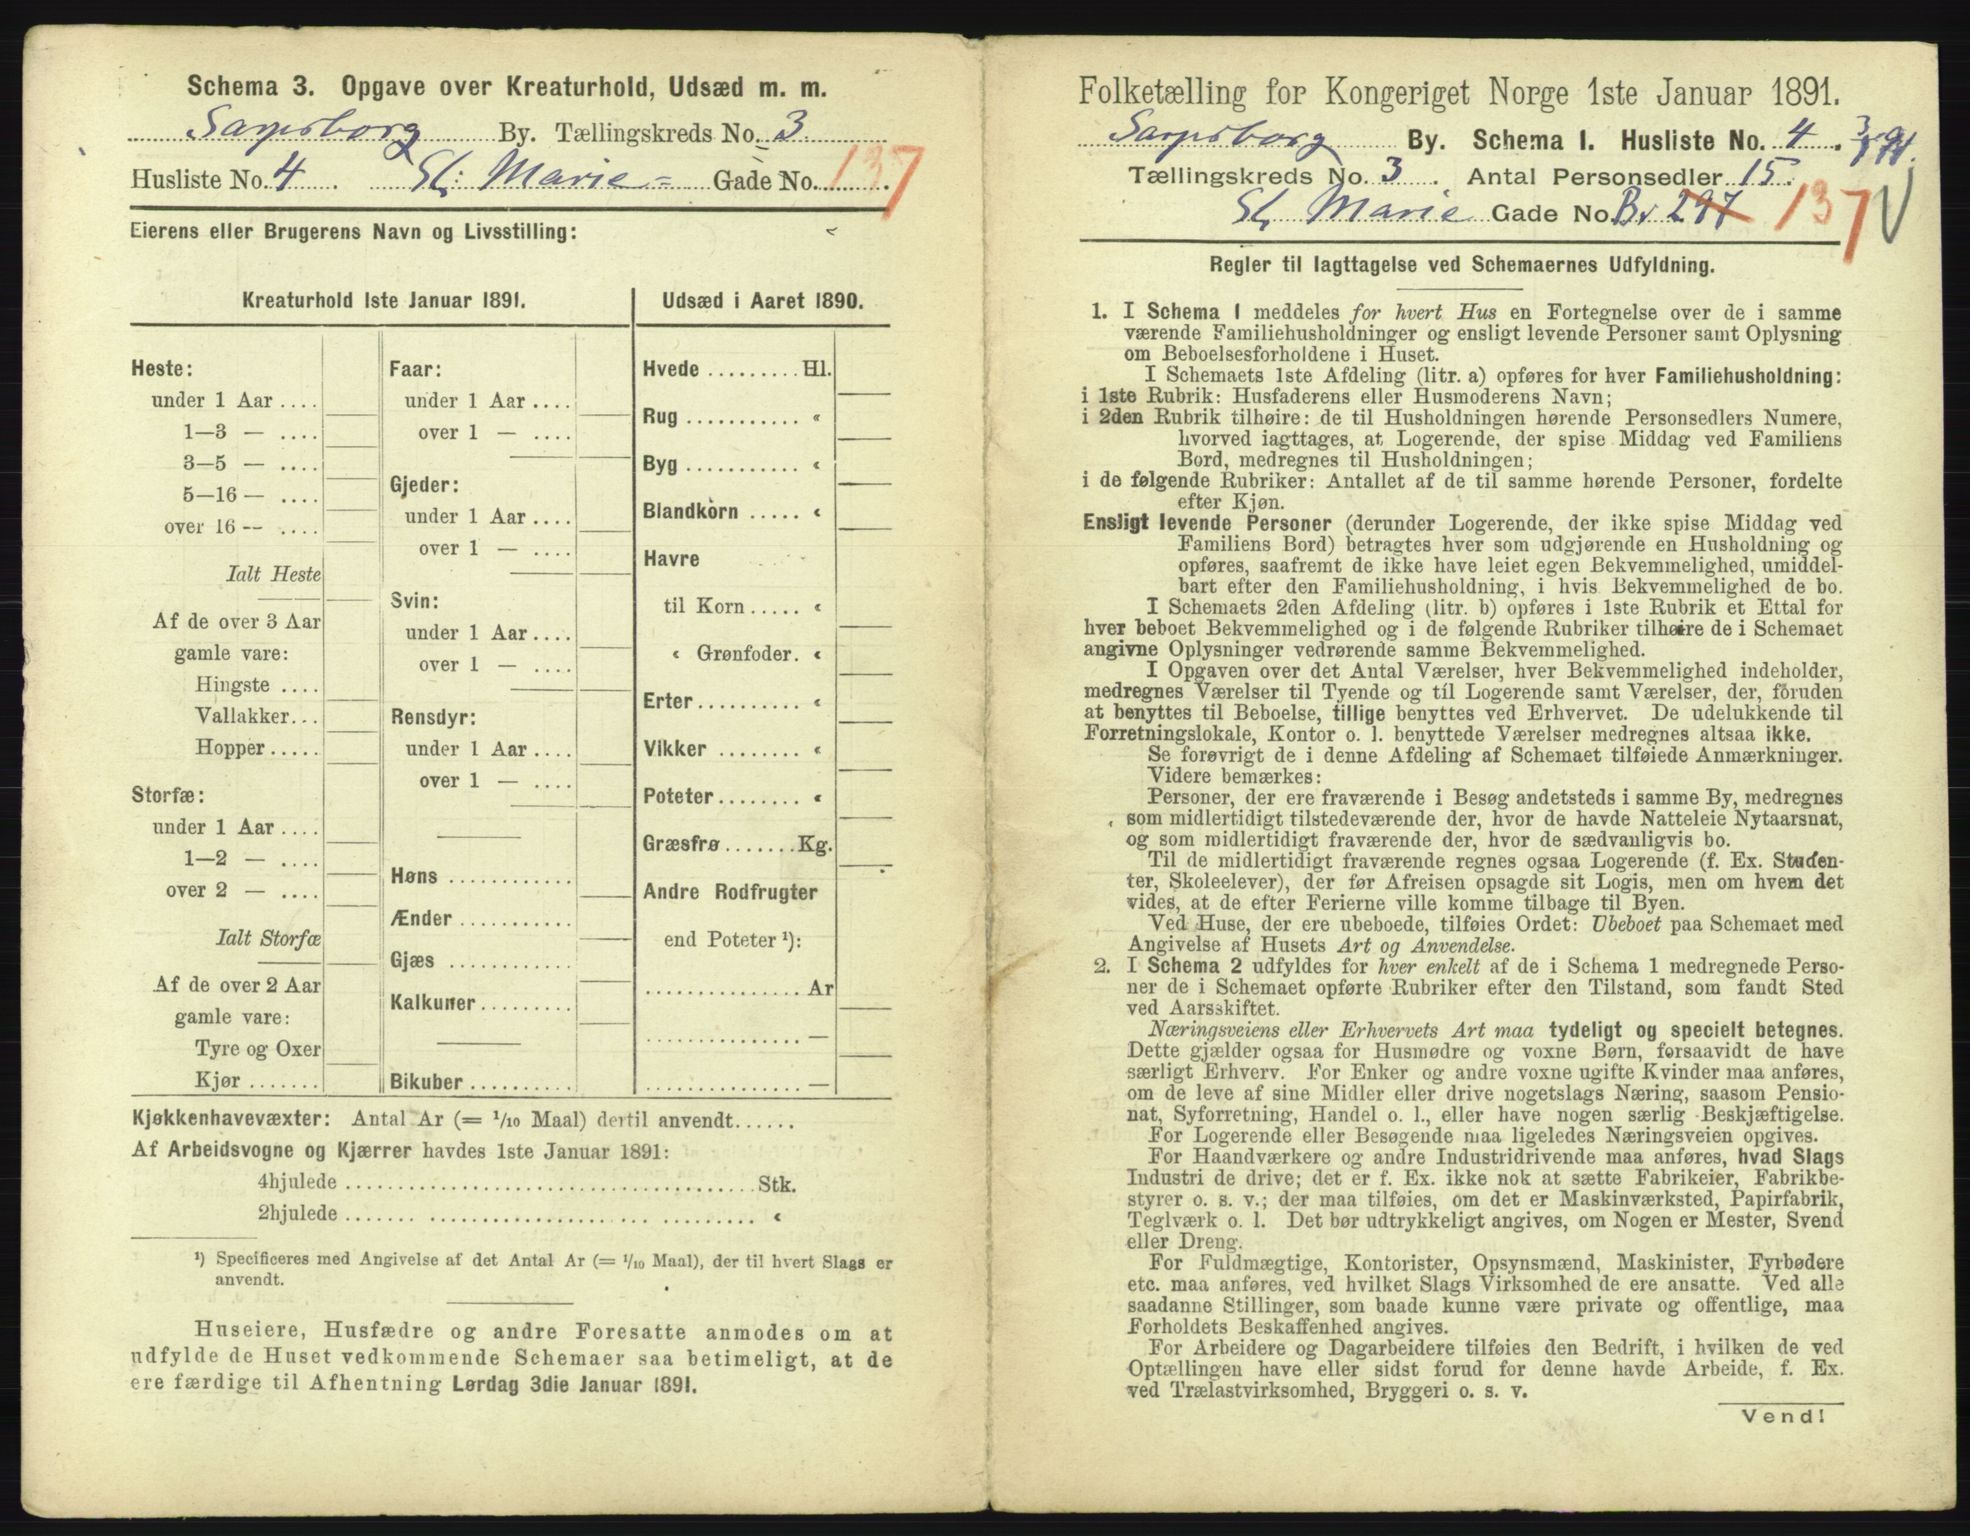 Schema 3. Opgave over Kreaturhold, Udsæd m. m.
Sarpsborg By. Tællingskreds No. 3
Husliste No. 4 . St. Marie Gade No. 137.
Eierens eller Brugerens Navn og Livsstilling:
Kreaturhold 1ste Januar 1891.
Heste:
under 1 Aar ....
1—3 — ....
3—5 — ....
5—16 — ....
over 16 — ....
Ialt Heste
Af de over 3 Aar
gamle vare:
Hingste ....
Vallakker...
Hopper .....
Storfæ:
under 1 Aar ....
1—2 — ....
over 2 — ....
Ialt Storfæ
Af de over 2 Aar
gamle vare:
Tyre og Oxer
Kjør .......
Faar:
under 1 Aar ....
over 1 — ....
Gjeder:
under 1 Aar ....
over 1 — ....
Svin:
under 1 Aar ....
over 1 — ....
Rensdyr:
under 1 Aar ....
over 1 — ....
Høns ............
Ænder ...........
Gjæs ............
Kalkuner.........
Bikuber ..........
Udsæd i Aaret 1890.
Hvede ......... Hl.
Rug ........... «
Byg ........... «
Blandkorn ..... «
Havre
til Korn ..... «
« Grønfoder. «
Erter.......... «
Vikker ........ «
Poteter........ «
Græsfrø ....... Kg.
Andre Rodfrugter
end Poteter ¹):
............... Ar
............... —
............... —
Kjøkkenhavevæxter: Antal Ar (= 1/10 Maal) dertil anvendt......
Af Arbeidsvogne og Kjærrer havdes 1ste Januar 1891:
4hjulede ........................................ Stk.
2hjulede ........................................ «
¹) Specificeres med Angivelse af det Antal Ar (= 1/10 Maal), der til hvert Slags er
anvendt.
Huseiere, Husfædre og andre Foresatte anmodes om at
udfylde de Huset vedkommende Schemaer saa betimeligt, at de
ere færdige til Afhentning Lørdag 3die Januar 1891.
Folketælling for Kongeriget Norge 1ste Januar 1891.
Sarpsborg By. Schema 1. Husliste No. 4 .
Tællingskreds No. 3 . Antal Personsedler 15.
St. Marie Gade No. B. 297 137
Regler til Iagttagelse ved Schemaernes Udfyldning.
1. I Schema 1 meddeles for hvert Hus en Fortegnelse over de i samme
værende Familiehusholdninger og ensligt levende Personer samt Oplysning
om Beboelsesforholdene i Huset.
I Schemaets 1ste Afdeling (litr. a) opføres for hver Familiehusholdning:
i 1ste Rubrik: Husfaderens eller Husmoderens Navn;
i 2den Rubrik tilhøire: de til Husholdningen hørende Personsedlers Numere,
hvorved iagttages, at Logerende, der spise Middag ved Familiens
Bord, medregnes til Husholdningen;
i de følgende Rubriker: Antallet af de til samme hørende Personer, fordelte
efter Kjøn.
Ensligt levende Personer (derunder Logerende, der ikke spise Middag ved
Familiens Bord) betragtes hver som udgjørende en Husholdning og
opføres, saafremt de ikke have leiet egen Bekvemmelighed, umiddel-
bart efter den Familiehusholdning, i hvis Bekvemmelighed de bo.
I Schemaets 2den Afdeling (litr. b) opføres i 1ste Rubrik et Ettal for
hver beboet Bekvemmelighed og i de følgende Rubriker tilhøire de i Schemaet
angivne Oplysninger vedrørende samme Bekvemmelighed.
I Opgaven over det Antal Værelser, hver Bekvemmelighed indeholder,
medregnes Værelser til Tyende og til Logerende samt Værelser, der, foruden
at benyttes til Beboelse, tillige benyttes ved Erhvervet. De udelukkende til
Forretningslokale, Kontor o. l. benyttede Værelser medregnes altsaa ikke.
Se forøvrigt de i denne Afdeling af Schemaet tilføiede Anmærkninger.
Videre bemærkes:
Personer, der ere fraværende i Besøg andetsteds i samme By, medregnes
som midlertidigt tilstedeværende der, hvor de havde Natteleie Nytaarsnat,
og som midlertidigt fraværende der, hvor de sædvanligvis bo.
Til de midlertidigt fraværende regnes ogsaa Logerende (f. Ex. Studen-
ter, Skoleelever), der før Afreisen opsagde sit Logis, men om hvem det
vides, at de efter Ferierne ville komme tilbage til Byen.
Ved Huse, der ere ubeboede, tilføies Ordet: Ubeboet paa Schemaet med
Angivelse af Husets Art og Anvendelse.
2. I Schema 2 udfyldes for hver enkelt af de i Schema 1 medregnede Perso-
ner de i Schemaet opførte Rubriker efter den Tilstand, som fandt Sted
ved Aarsskiftet.
Næringsveiens eller Erhvervets Art maa tydeligt og specielt betegnes.
Dette gjælder ogsaa for Husmødre og voxne Børn, forsaavidt de have
særligt Erhverv. For Enker og andre voxne ugifte Kvinder maa anføres,
om de leve af sine Midler eller drive nogetslags Næring, saasom Pensio-
nat, Syforretning, Handel o. l., eller have nogen særlig Beskjæftigelse.
For Logerende eller Besøgende maa ligeledes Næringsveien opgives.
For Haandværkere og andre Industridrivende maa anføres, hvad Slags
Industri de drive; det er f. Ex. ikke nok at sætte Fabrikeier, Fabrikbe-
styrer o. s. v.; der maa tilføies, om det er Maskinværksted, Papirfabrik,
Teglværk o. l. Det bør udtrykkeligt angives, om Nogen er Mester, Svend
eller Dreng.
For Fuldmægtige, Kontorister, Opsynsmænd, Maskinister, Fyrbødere
etc. maa anføres, ved hvilket Slags Virksomhed de ere ansatte. Ved alle
saadanne Stillinger, som baade kunne være private og offentlige, maa
Forholdets Beskaffenhed angives.
For Arbeidere og Dagarbeidere tilføies den Bedrift, i hvilken de ved
Optællingen have eller sidst forud for denne havde Arbeide, f. Ex.
ved Trælastvirksomhed, Bryggeri o. s. v.
Vend!